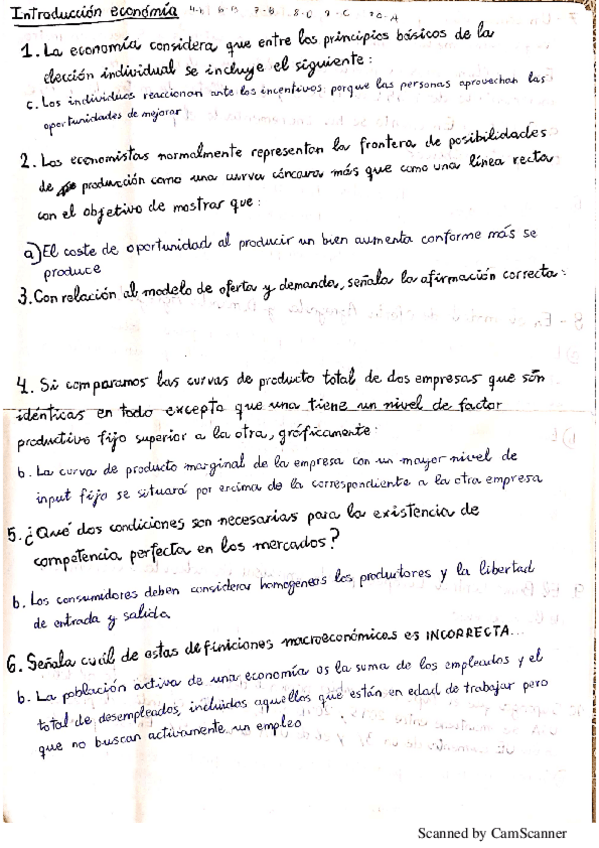 Introducción economía 6-B 7-B 8-D 9-C 10-A
1. La economía considera que entre los principios básicos de la
elección individual se incluye el siguiente:
c. Los individuos reaccionan ante los incentivos porque las personas aprovechan las
oportunidades de mejorar
2. Los economistas normalmente representan la frontera de posibilidades
de producción como una curva cóncava más que como una línea recta
con el objetivo de mostrar que:
a) El coste de oportunidad al producir un bien aumenta conforme más se
produce
3. Con relación al modelo de oferta y demanda, señala la afirmación correcta:
4. Si comparamos las curvas de producto total de dos empresas que son
idénticas en todo excepto que una tiene un nivel de factor
productivo fijo superior a la otra, gráficamente:
b. La curva de producto marginal de la empresa con un mayor nivel de
input fijo se situará por encima de la correspondiente a la otra empresa
5. ¿Qué dos condiciones son necesarias para la existencia de
competencia perfecta en los mercados?
b. Los consumidores deben considerar homogéneos los productores y la libertad
de entrada y salida
6. Señala cuál de estas definiciones macroeconómicas es INCORRECTA...
b. La población activa de una economía es la suma de los empleados y el
total de desempleados, incluidos aquellos que están en edad de trabajar pero
que no buscan activamente un empleo
Scanned by CamScanner